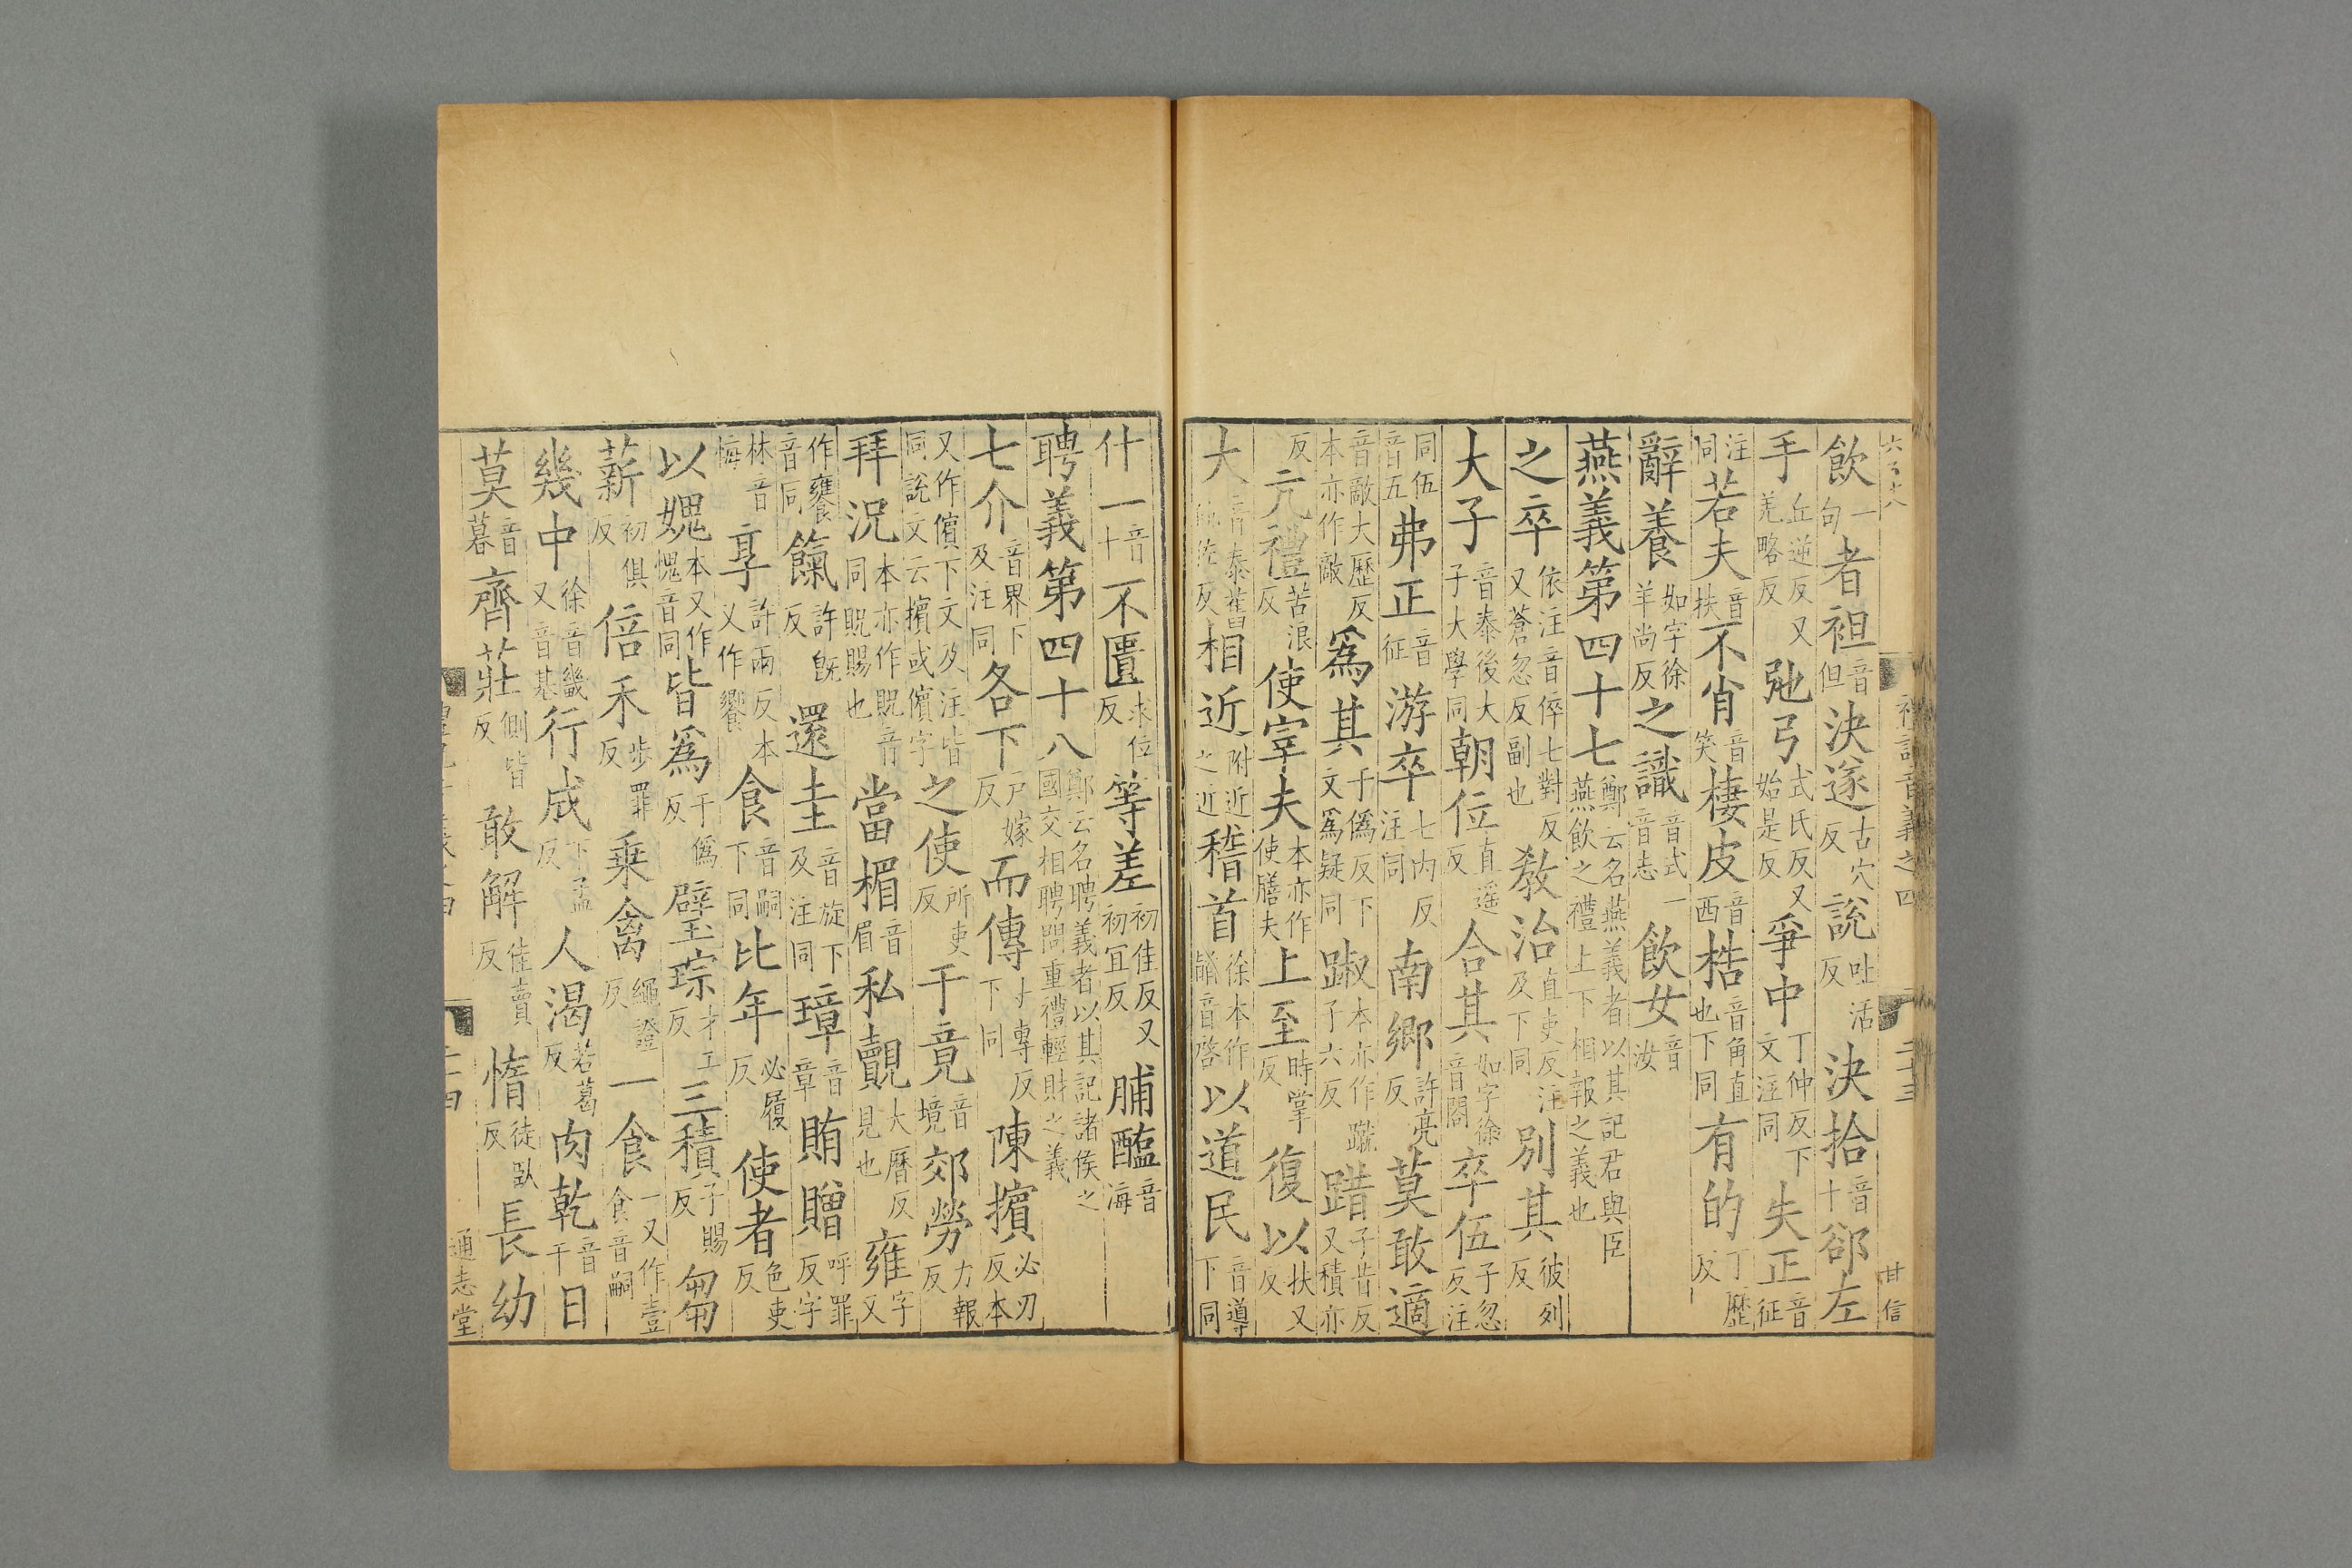 禮記音義之四 二十三 甘信
飲一句者袒音但決遂古穴反說吐活反決拾音十郤左
手丘逆反又羌略反弛弓式氏反又始是反爭中丁仲反下文注同失正音征
注同若夫音扶不肖音笑棲皮音西梏音角直也下同有的丁歷反
辭養如字徐羊尚反之識音式一音志飲女音汝
燕義第四十七鄭云名燕義者以其記君與臣燕飲之禮上下相報之義也
之卒依注音倅七對反又蒼忽反副也教治直吏反注及下同別其彼列反
大子音泰後大子大學同朝位直遥反合其如字徐音閤卒伍子忽反注
同伍音五弗正音征游卒七内反注同南鄉許亮反莫敢適
音敵大歷反本亦作敵爲其于僞反下文爲疑同踧本亦作蹴子六反踖子昔反又積亦
反亢禮苦浪反使宰夫本亦作使膳夫上至時掌反復以扶又反
大音泰舊佐反相近附近之近稽首徐本作䭫音啓以道民音導下同
什一音十不匱求位反等差初佳反又初宜反脯醢音海
聘義第四十八鄭云名聘義者以其記諸侯之國交相聘問重禮輕財之義
七介音界下及注同各下戶嫁反而傳丈專反下同陳擯必刃反本
又作儐下文及注皆同說文云擯或儐字之使所吏反干竟音境郊勞力報反
拜況本亦作貺音同貺賜也當楣音眉私覿大曆反見也雍字又
作饔音同餼許既反還圭音旋下及注同璋音章賄贈呼罪反字
林音悔享許兩反本又作饗食音嗣下同比年必履反使者色吏反
以媿本又作愧音同皆爲于僞反璧琮才工反三積子賜反芻
薪初俱反倍禾步罪反乘禽繩證反一食一又作壹食音嗣
幾中徐音畿又音基行成下孟反人渴苦葛反肉乾音干日
莫音暮齊莊側皆反敢解佳賣反惰徒臥反長幼
二十四 通志堂